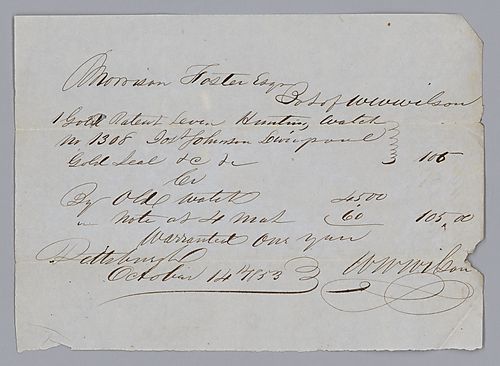 Morrison Foster Esqr
Bot of W W Wilson
1 Gold Patent Lever Hunting Watch
No 1308 Jos Johnson Liverpool
Gold Seal &c &c 105
Cr
By Old Watch 45.00
" note at 4 mos 60 105.00
Warranted One year
Pittsburgh
October 14th 1853
W W Wilson